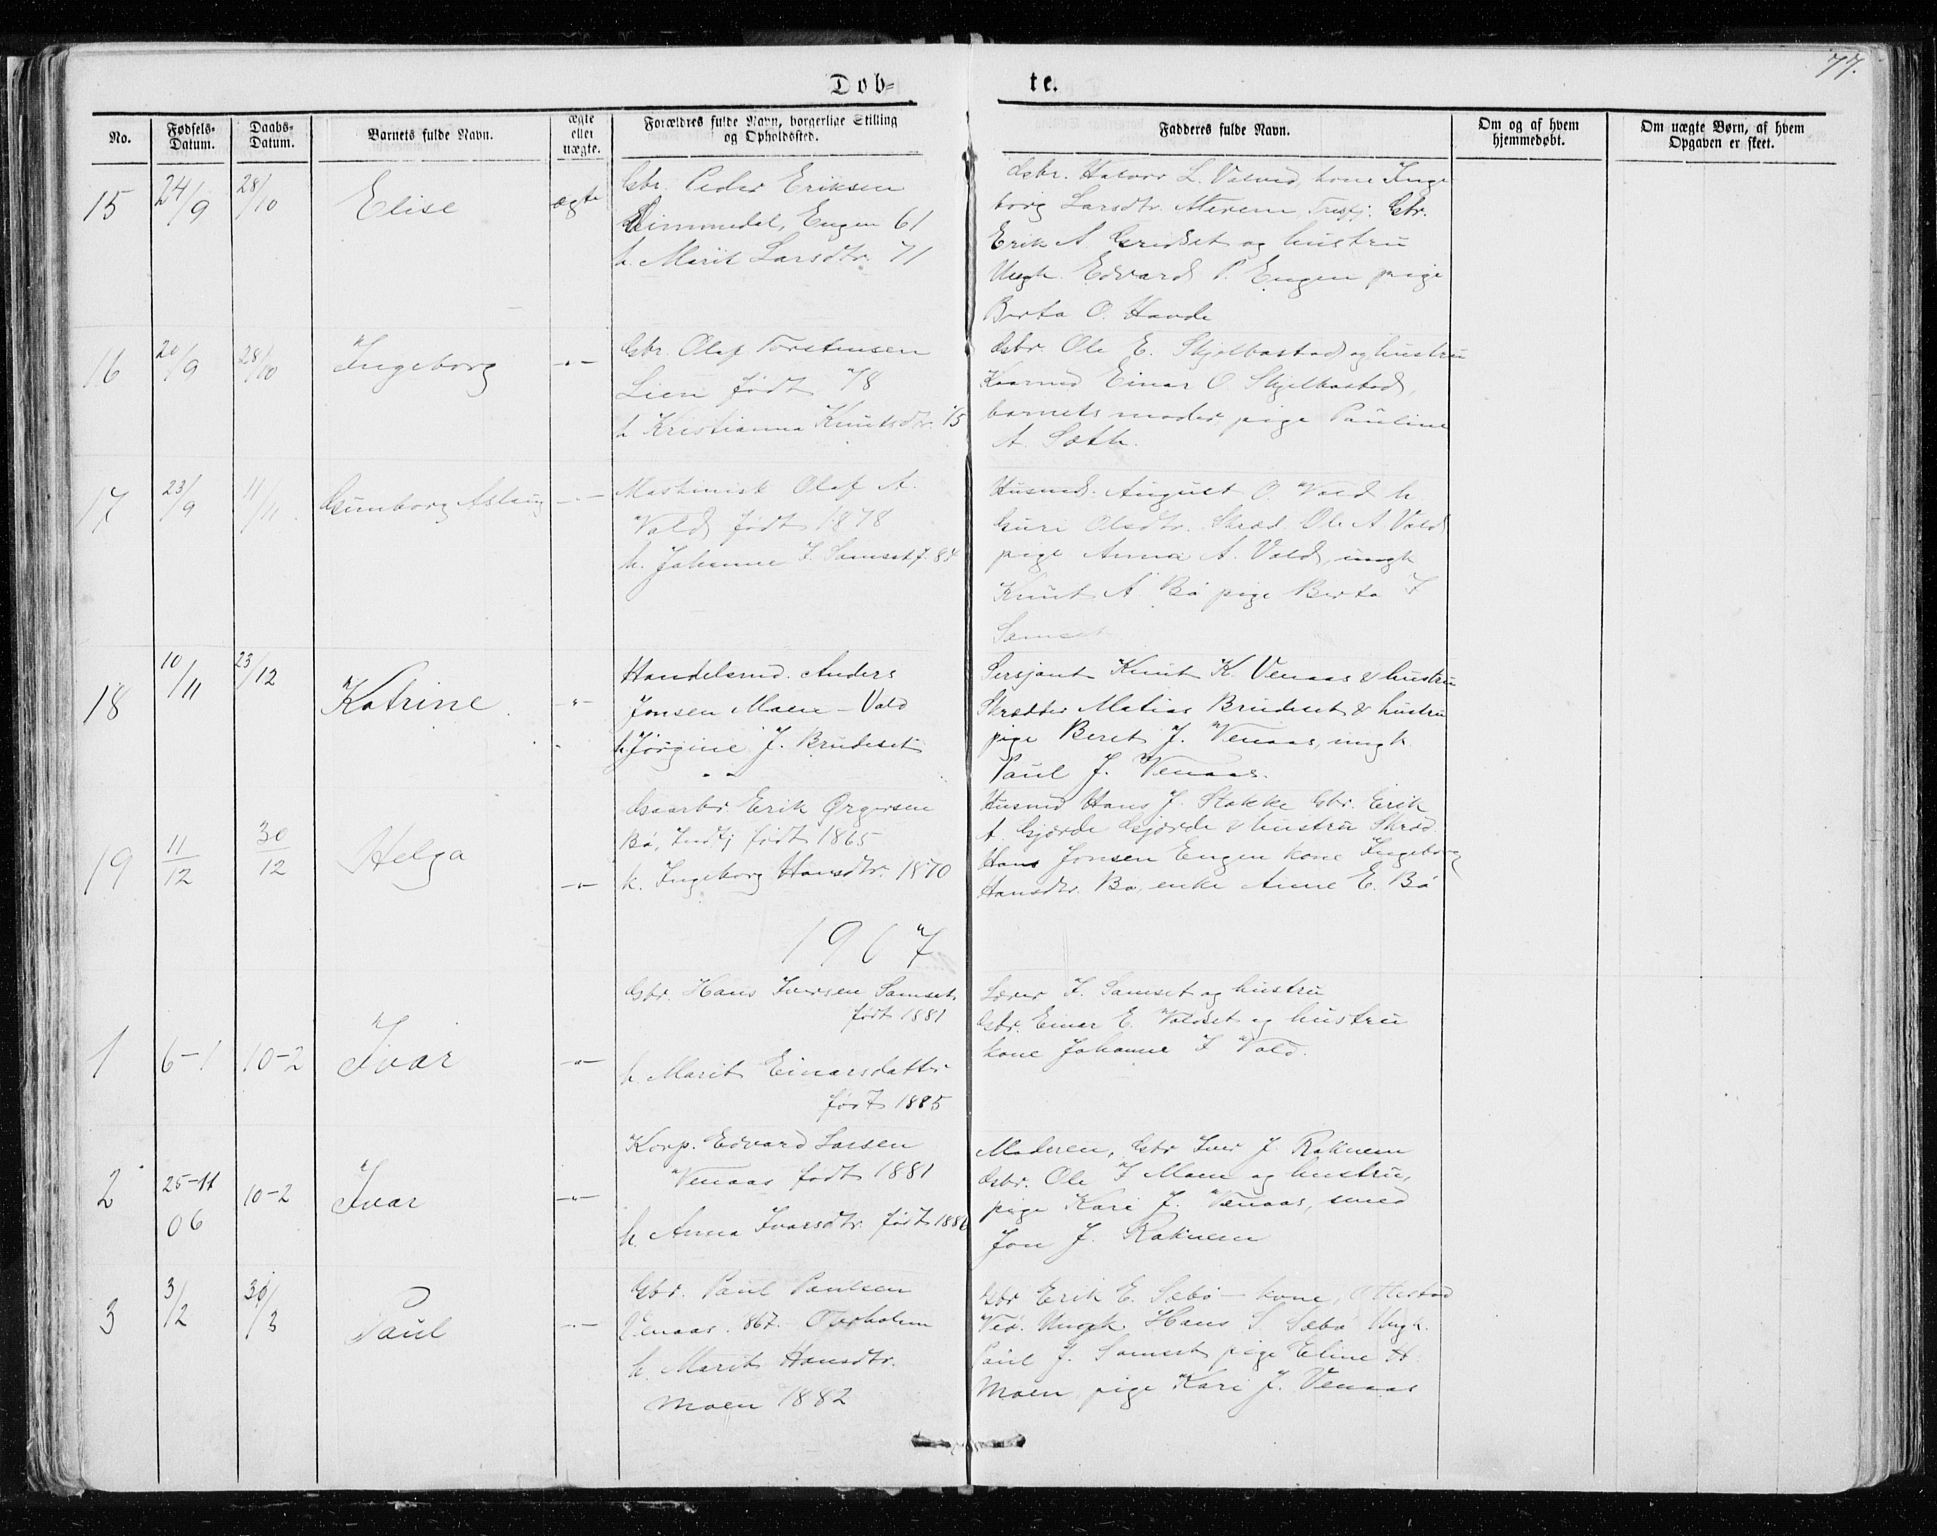 77.
Døb- te.
No. Fødsels-Datum. Daabs-Datum. Barnets fulde Navn. ægte eller uægte. Forældres fulde Navn, borgerlige Stilling og Opholdssted. Fadderes fulde Navn. Om og af hvem hjemmedøbt. Om uægte Børn, af hvem Opgaven er skeet.
15 24/9 28/10 Elise ægte
Gbr. Peder Eriksen
Limmedal, Engen 61
h. Marit Larsdtr. 71
Gbr. Halvor L. Valved, kone Inge
borg Larsdtr. Tresfj. Gbr.
Erik A Gridset og hustru
Ungk. Edvard P. Engen pige
Berta O. Hovde
16 20/9 28/10 Ingeborg -"-
Gbr. Olaf Torstensen
Lien født 78
h Kristianna Knutsdtr. 75
Gbr. Ole E. Skjelbostad og hustru
Einar O. Skjelbostad,
barnets moder, pige Pauline
A. Sæth.
17 23/9 11/11 Gunborg Aslaug -"-
Maskinist Olaf A.
Vold født 1878
h. Johanne I. Samset f. 84
Husmd. August O. Vold h.
Guri Olsdtr. Skræd. Ole A Vold
pige Anna A. Vold, ungk
Knut A Bø pige Berta I
Samset
18 10/11 23/12 Katrine -"-
Handelsmd. Anders
Jonsen Moen - Vold
h Jørgine J. Brudeset
Sersjant Knut K. Venaas & hustru
Skrædder Matias Brudeset & hustru
pige Beret J. Venaas, ungk
Paul J. Venaas.
19 11/12 30/12 Helga -"-
Gaarbr Erik Ørgersen
Bø, Indfj født 1865
k. Ingeborg Hansdtr. 1870
Husmd Hans J. Stokke Gbr. Erik
A. Gjørde Gjørde & hustru Skræd.
Hans Jonsen Engen kone Ingeborg
Hansdtr. Bø, enke Anne E. Bø
1907
1 6-1 10-2 Ivar -"-
Gbr. Hans Iversen Samset,
født 1881
h. Marit Einarsdatter
født 1885
Lærer I. Samset og hustru
Gbr. Einar E. Voldset og hustru
kone Johanne I Vold.
2 25-11 06 10-2 Ivar -"-
Korp. Edvard Larsen
Venaas født 1881
h. Anna Ivarsdtr. født
Moderen, Gbr Iver J. Roknem
Gbr. Ole I Moen og hustru,
pige Kari J. Venaas, smed
Jon J. Roknem
3 3/2 30/3 Paul -"-
Gbr. Paul Paulsen
Venaas. 867. Overholm
h. Marit Hansdtr.
Moen 1882
Gbr Erik E. Sæbø - kone,
Veø. Ungk Hans S. Sæbø Ungk.
Paul J. Samset pige Eline H
Moen, pige Kari J. Venaas